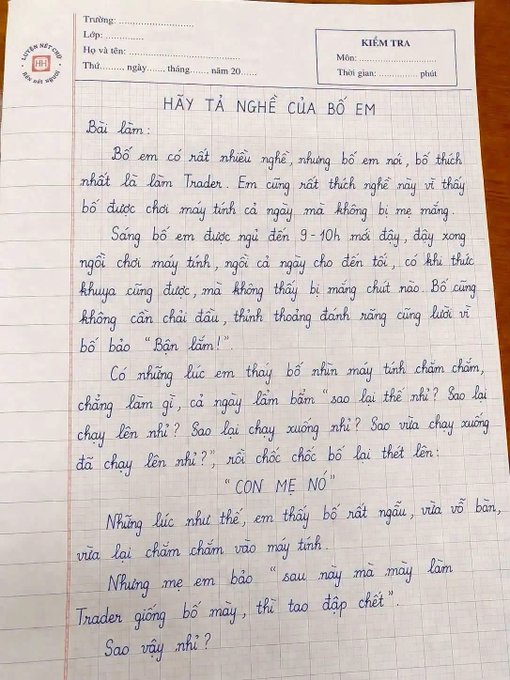 LUYỆN NÉT CHỮ
HH
RÈN NẾT NGƯỜI
Trường: ..............................
Lớp: ......................
Họ và tên: ..........................
Thứ........ ngày...... tháng........ năm 20......
KIỂM TRA
Môn:..............................
Thời gian:................ phút
HÃY TẢ NGHỀ CỦA BỐ EM
Bài làm:
Bố em có rất nhiều nghề, nhưng bố em nói, bố thích
nhất là làm Trader. Em cũng rất thích nghề này vì thấy
bố được chơi máy tính cả ngày mà không bị mẹ mắng.
Sáng bố em được ngủ đến 9-10h mới dậy, dậy xong
ngồi chơi máy tính, ngồi cả ngày cho đến tối, có khi thức
khuya cũng được, mà không thấy bị mắng chút nào. Bố cũng
không cần chải đầu, thỉnh thoảng đánh răng cũng lười vì
bố bảo "Bận lắm!".
Có những lúc em thấy bố nhìn máy tính chăm chăm,
chẳng làm gì, cả ngày lẩm bẩm "sao lại thế nhỉ? Sao lại
chạy lên nhỉ? Sao lại chạy xuống nhỉ? Sao vừa chạy xuống
đã chạy lên nhỉ?", rồi chốc chốc bố lại thét lên:
"CON MẸ NÓ"
Những lúc như thế, em thấy bố rất ngầu, vừa vỗ bàn,
vừa lại chăm chăm vào máy tính.
Nhưng mẹ em bảo "sau này mà mày làm
Trader giống bố mày, thì tao đập chết".
Sao vậy nhỉ?